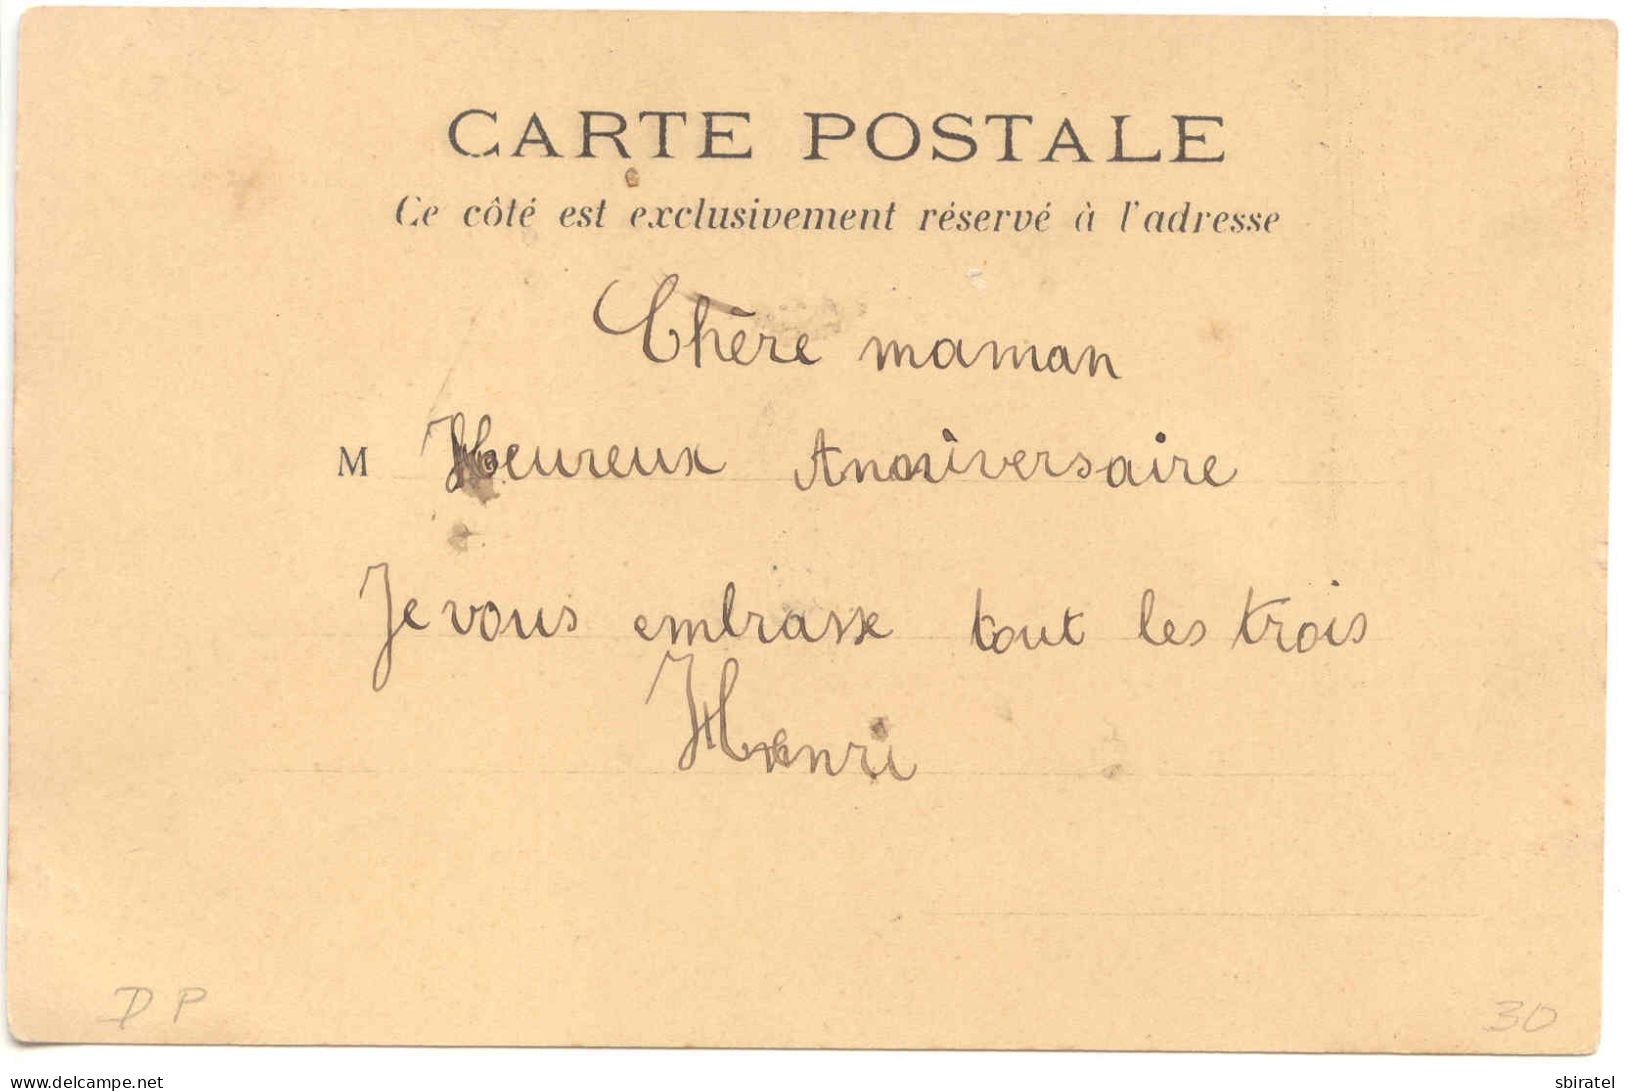 CARTE POSTALE
Ce côté est exclusivement réservé à l'adresse
Chère maman
M Heureux Anniversaire
Je vous embrasse tout les trois
Henri
DP
30
delcampe.net
sbiratel